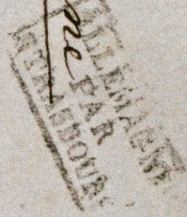 ne
ALLEMAGNE
PAR
STRASBOURG